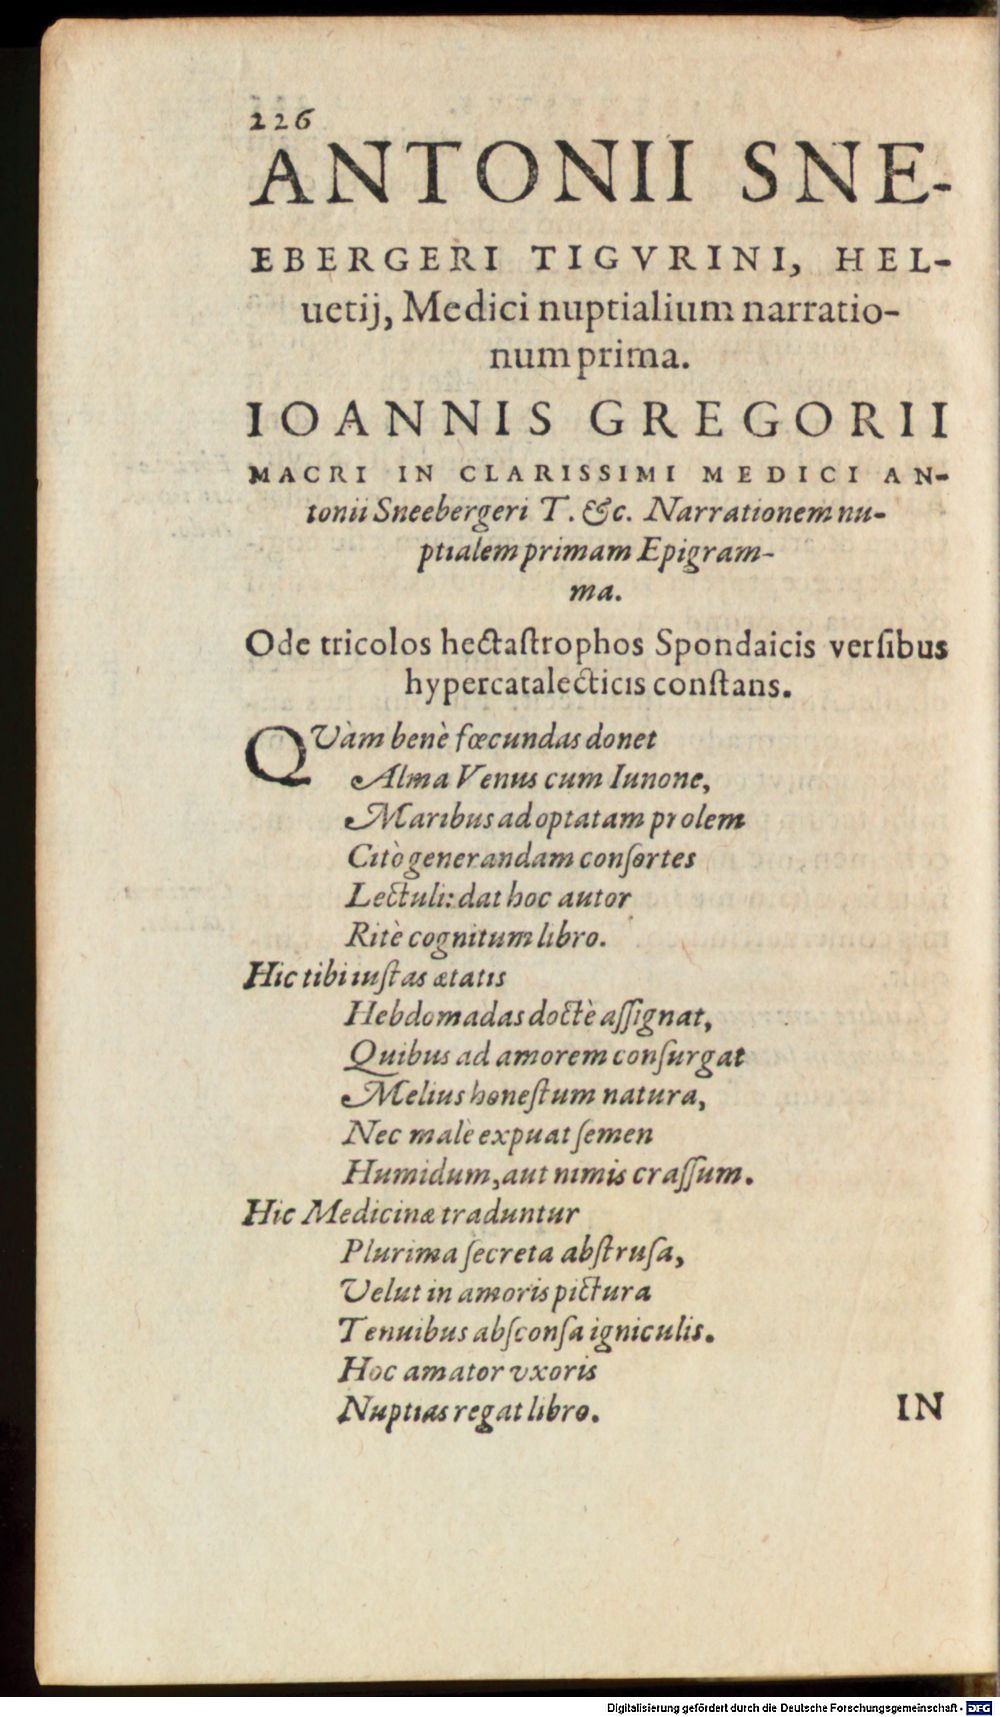 226
ANTONII SNE-
EBERGERI TIGVRINI, HEL-
uetij, Medici nuptialium narratio-
num prima.
IOANNIS GREGORII
MACRI IN CLARISSIMI MEDICI AN-
tonii Sneebergeri T. &c. Narrationem nu-
ptialem primam Epigram-
ma.
Ode tricolos hectaſtrophos Spondaicis verſibus
hypercatalecticis conſtans.
QVàm benè fœcundas donet
Alma Venus cum Iunone,
Maribus ad optatam prolem
Citò generandam conſortes
Lectuli: dat hoc autor
Ritè cognitum libro.
Hic tibi iuſtas ætatis
Hebdomadas doctè aſſignat,
Quibus ad amorem conſurgat
Melius honeſtum natura,
Nec malè expuat ſemen
Humidum, aut nimis craſſum.
Hic Medicinæ traduntur
Plurima ſecreta abſtruſa,
Velut in amoris pictura
Tenuibus abſconſa igniculis.
Hoc amator vxoris
Nuptias regat libro.
IN
Digitalisierung gefördert durch die Deutsche Forschungsgemeinschaft - DFG